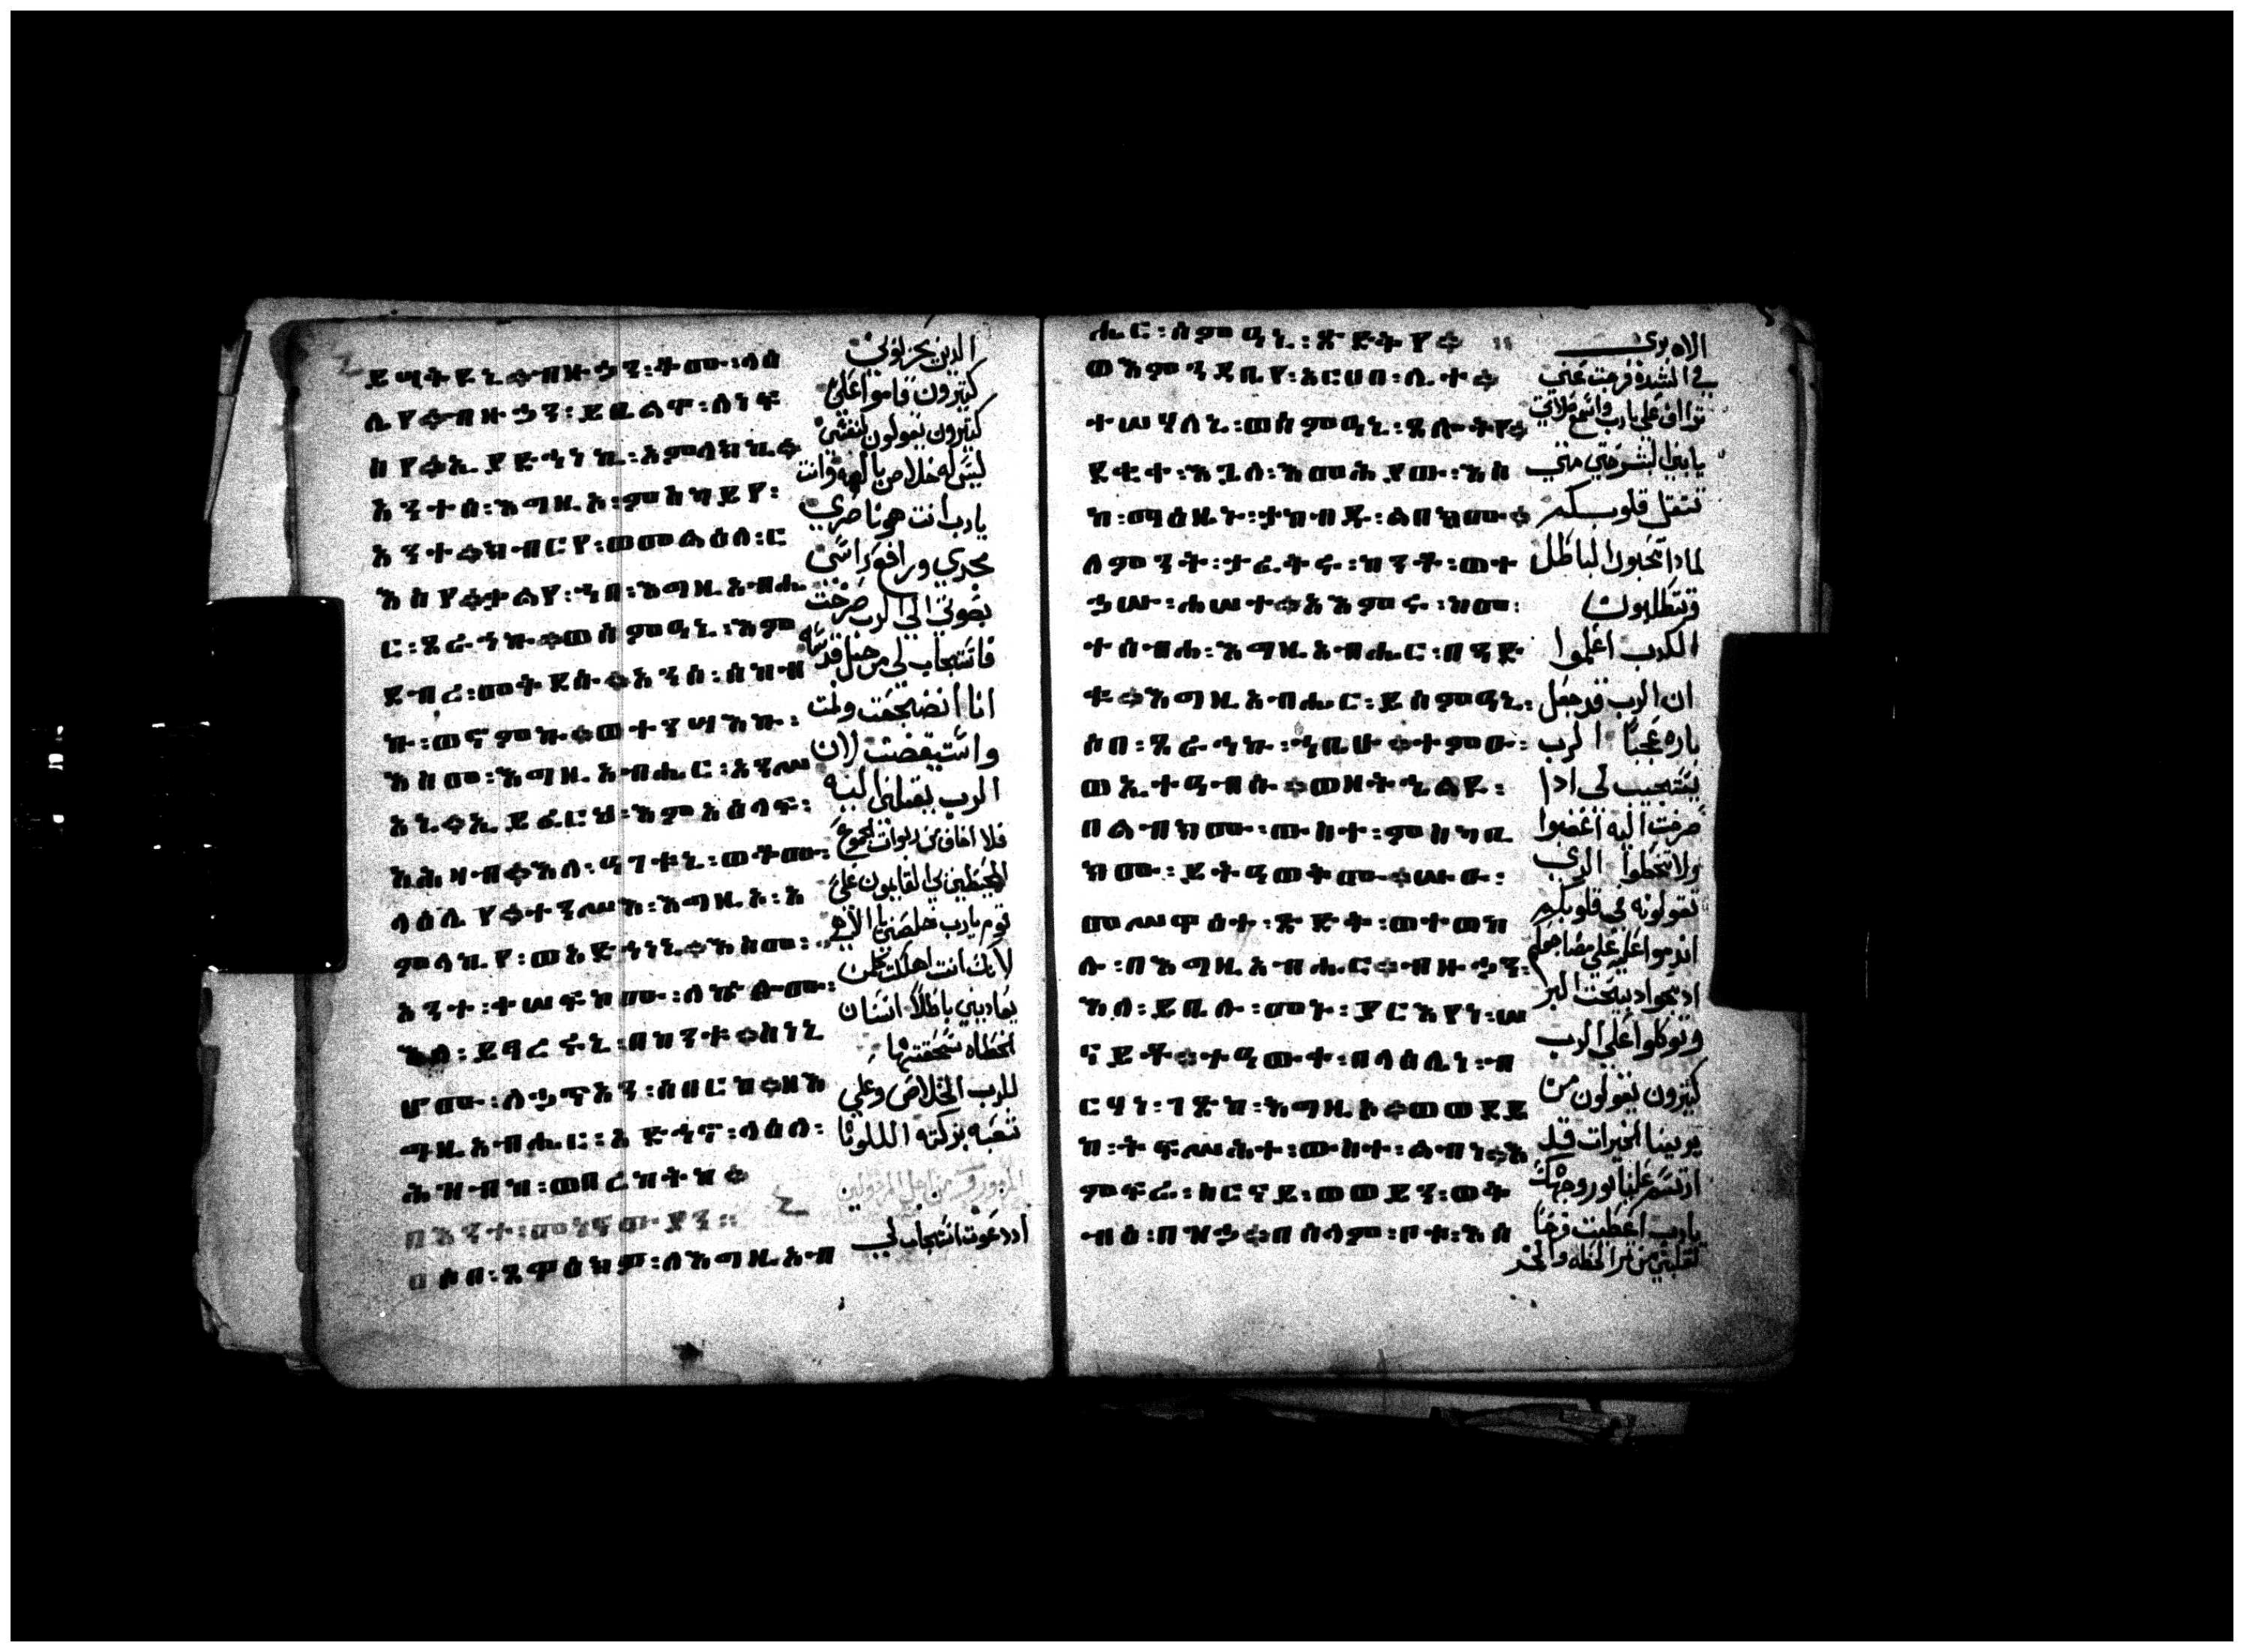 ይሣቅዩኒ። ብዙኃን፡ ቆሙ፡ ላዕ
ሌየ። ብዙኃን፡ ይቤልዋ፡ ለነፍ
ስየ። ኢያድኅነኪ፡ አምላክኪ።
አንተሰ፡ እግዚኦ፡ ምስካይየ፡
አንተ። ክብርየ፡ ወመልዕለ፡ ር
እስየ። ቃልየ፡ ኀበ፡ እግዚአብሔ
ር፡ ጸራኅኩ። ወሰምዐኒ፡ እም
ደብረ፡ መቅደሱ። አንሰ፡ ሰከብ
ኩ፡ ወኖምኩ። ወተንሣእኩ፡
እስመ፡ እግዚአብሔር፡ አንሥ
አኒ። ኢይፈርህ፡ እምአዕላፍ፡
አሕዛብ። እለ፡ ዓገቱኒ፡ ወቆሙ፡
ላዕሌየ። ተንሥእ፡ እግዚኦ፡ አ
ምላኪየ፡ ወአድኅነኒ። እስመ፡
አንተ፡ ተሠፍኮሙ፡ ለኵሎሙ፡
እለ፡ ይፃረሩኒ፡ በከንቱ። ስነኒ
ሆሙ፡ ለኃጥአን፡ ሰበርከ። ዘእ
ግዚአብሔር፡ አድኅኖ፡ ላዕለ፡
ሕዝብከ፡ ወበረከትከ።
በእንተ፡
ወሶበ፡ ጸዋዕክዎ፡ ለእግዚአብ
الذين يحزنونى
كثيرون قاموا على
كثيرون يقولون لنفسى
ليس له خلاص بالهه وانت
يارب انت هو ناصري
مجدي ورافع راسى
بصوتى الى الرب صرخت
فاستجاب لى من جبل قدسه
انا انضجعت ونمت
واستيقضت لان
الرب
فلا اخاف من ربوات الجموع
المحيطين بى القايمون على
قوم يارب خلصنى يا الاهى
لانك انت اهلكت كل من
يعاديني باطلا اسنان
الخطاه سحقتها
للرب الخلاص وعلى
شعبه بركته الللويا
المزمور
اد دعوت استجاب لى
ሔር፡ ሰምዐኒ፡ ጽድቅየ።
ወእምንዳቤየ፡ አርሀበ፡ ሊተ።
ተሠሃለኒ፡ ወሰምዐኒ፡ ጸሎትየ።
ደቂቀ፡ እጓለ፡ እመሕያው፡ እስ
ከ፡ ማዕዜኑ፡ ታከብዱ፡ ልበክሙ።
ለምንት፡ ታፈቅሩ፡ ከንቶ፡ ወተ
ኃሡ፡ ሐሠተ። አእምሩ፡ ከመ፡
ተሰብሐ፡ እግዚአብሔር፡ በጻድ
ቁ። እግዚአብሔር፡ ይሰምዐኒ፡
ሶበ፡ ጸራኅኩ፡ ኀቤሁ። ተምዑ፡
ወኢተዓብሱ። ወዘትኄልዩ፡
በልብክሙ፡ ውስተ፡ ምስካቢ
ክሙ፡ ይትዓወቅሙ። ሡዑ፡
መሥዋዕተ፡ ጽድቅ፡ ወተወከ
ሉ፡ በእግዚአብሔር። ብዙኃን፡
እለ፡ ይቤሉ፡ መኑ፡ ያርእየነ፡ ሠ
ናይቶ። ተዓውቀ፡ በላዕሌነ፡ ብ
ርሃነ፡ ገጽከ፡ እግዚኦ። ወወደይ
ከ፡ ትፍሥሕተ፡ ውስተ፡ ልብነ። እ
ምፍሬ፡ ስርናይ፡ ወወይን፡ ወቅ
ብዕ፡ በዝኃ። በሰላም፡ ቦቱ፡ እሰ
الاه بري
في الشدة فرجت عني
تراف على يارب واسمع صلاتي
يابنى البشر حتي متي
تتقل قلوبكم
لمادا تحبون الباطل
وتطلبون
الكدب اعلموا
ان الرب قد جعل
باره عجبا الرب
يستجيب لى ادا
صرخت اليه اغضبوا
ولا تخطوا الدي
تقولونه في قلوبكم
اندموا عليه على مضاجعكم
ادبحوا دبيحت البر
وتوكلوا على الرب
كثيرون يقولون من
يرينا الخيرات قد
ارتسم علينا نور وجهك
يارب اعطيت فرحا